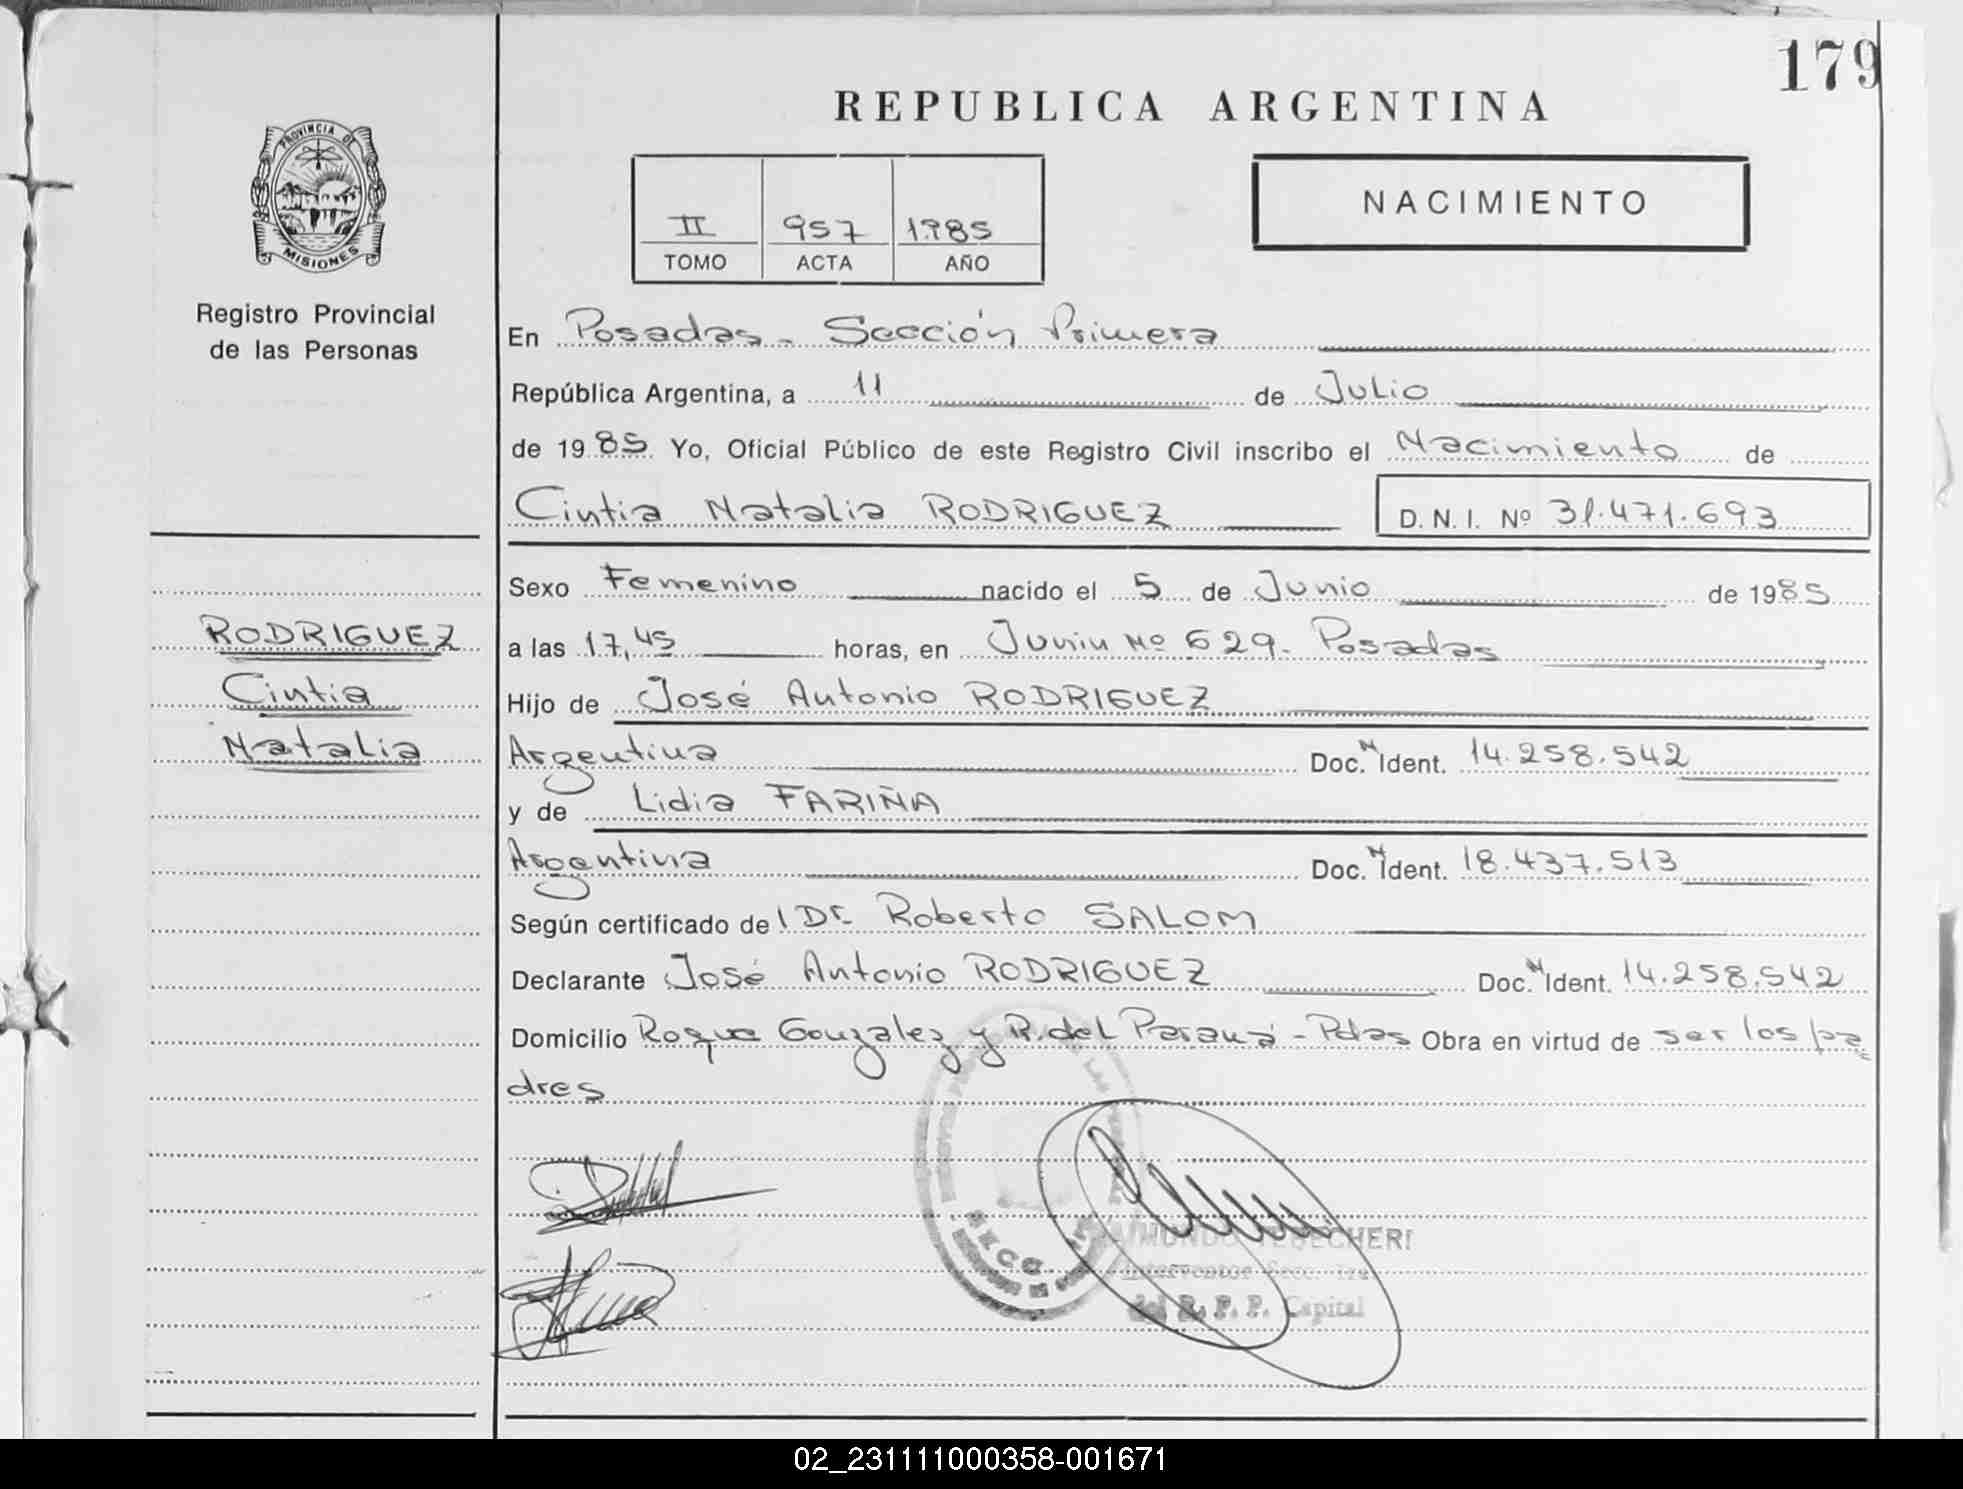 179
REPUBLICA ARGENTINA
PROVINCIA DE
MISIONES
Registro Provincial
de las Personas
II 957 1985
TOMO ACTA AÑO
NACIMIENTO
En Posadas - Sección Primera
República Argentina, a 11 de Julio
de 1985 Yo, Oficial Público de este Registro Civil inscribo el Nacimiento de
Cintia Natalia RODRIGUEZ D. N. I. Nº 31.471.693
Sexo Femenino nacido el 5 de Junio de 1985
RODRIGUEZ
Cintia
Natalia
a las 17,45 horas, en Junin Nº 629. Posadas
Hijo de José Antonio RODRIGUEZ
Argentina Doc. N Ident. 14.258.542
y de Lidia FARIÑA
Argentina Doc. N Ident. 18.437.513
Según certificado del Dr. Roberto SALOM
Declarante José Antonio RODRIGUEZ Doc. N Ident. 14.258.542
Domicilio Roque Gonzalez y R. del Paraná - Pdas Obra en virtud de ser los pa=
dres
SECC.
Interventor Secc. 1ra
del R. P. P. Capital
02_231111000358-001671